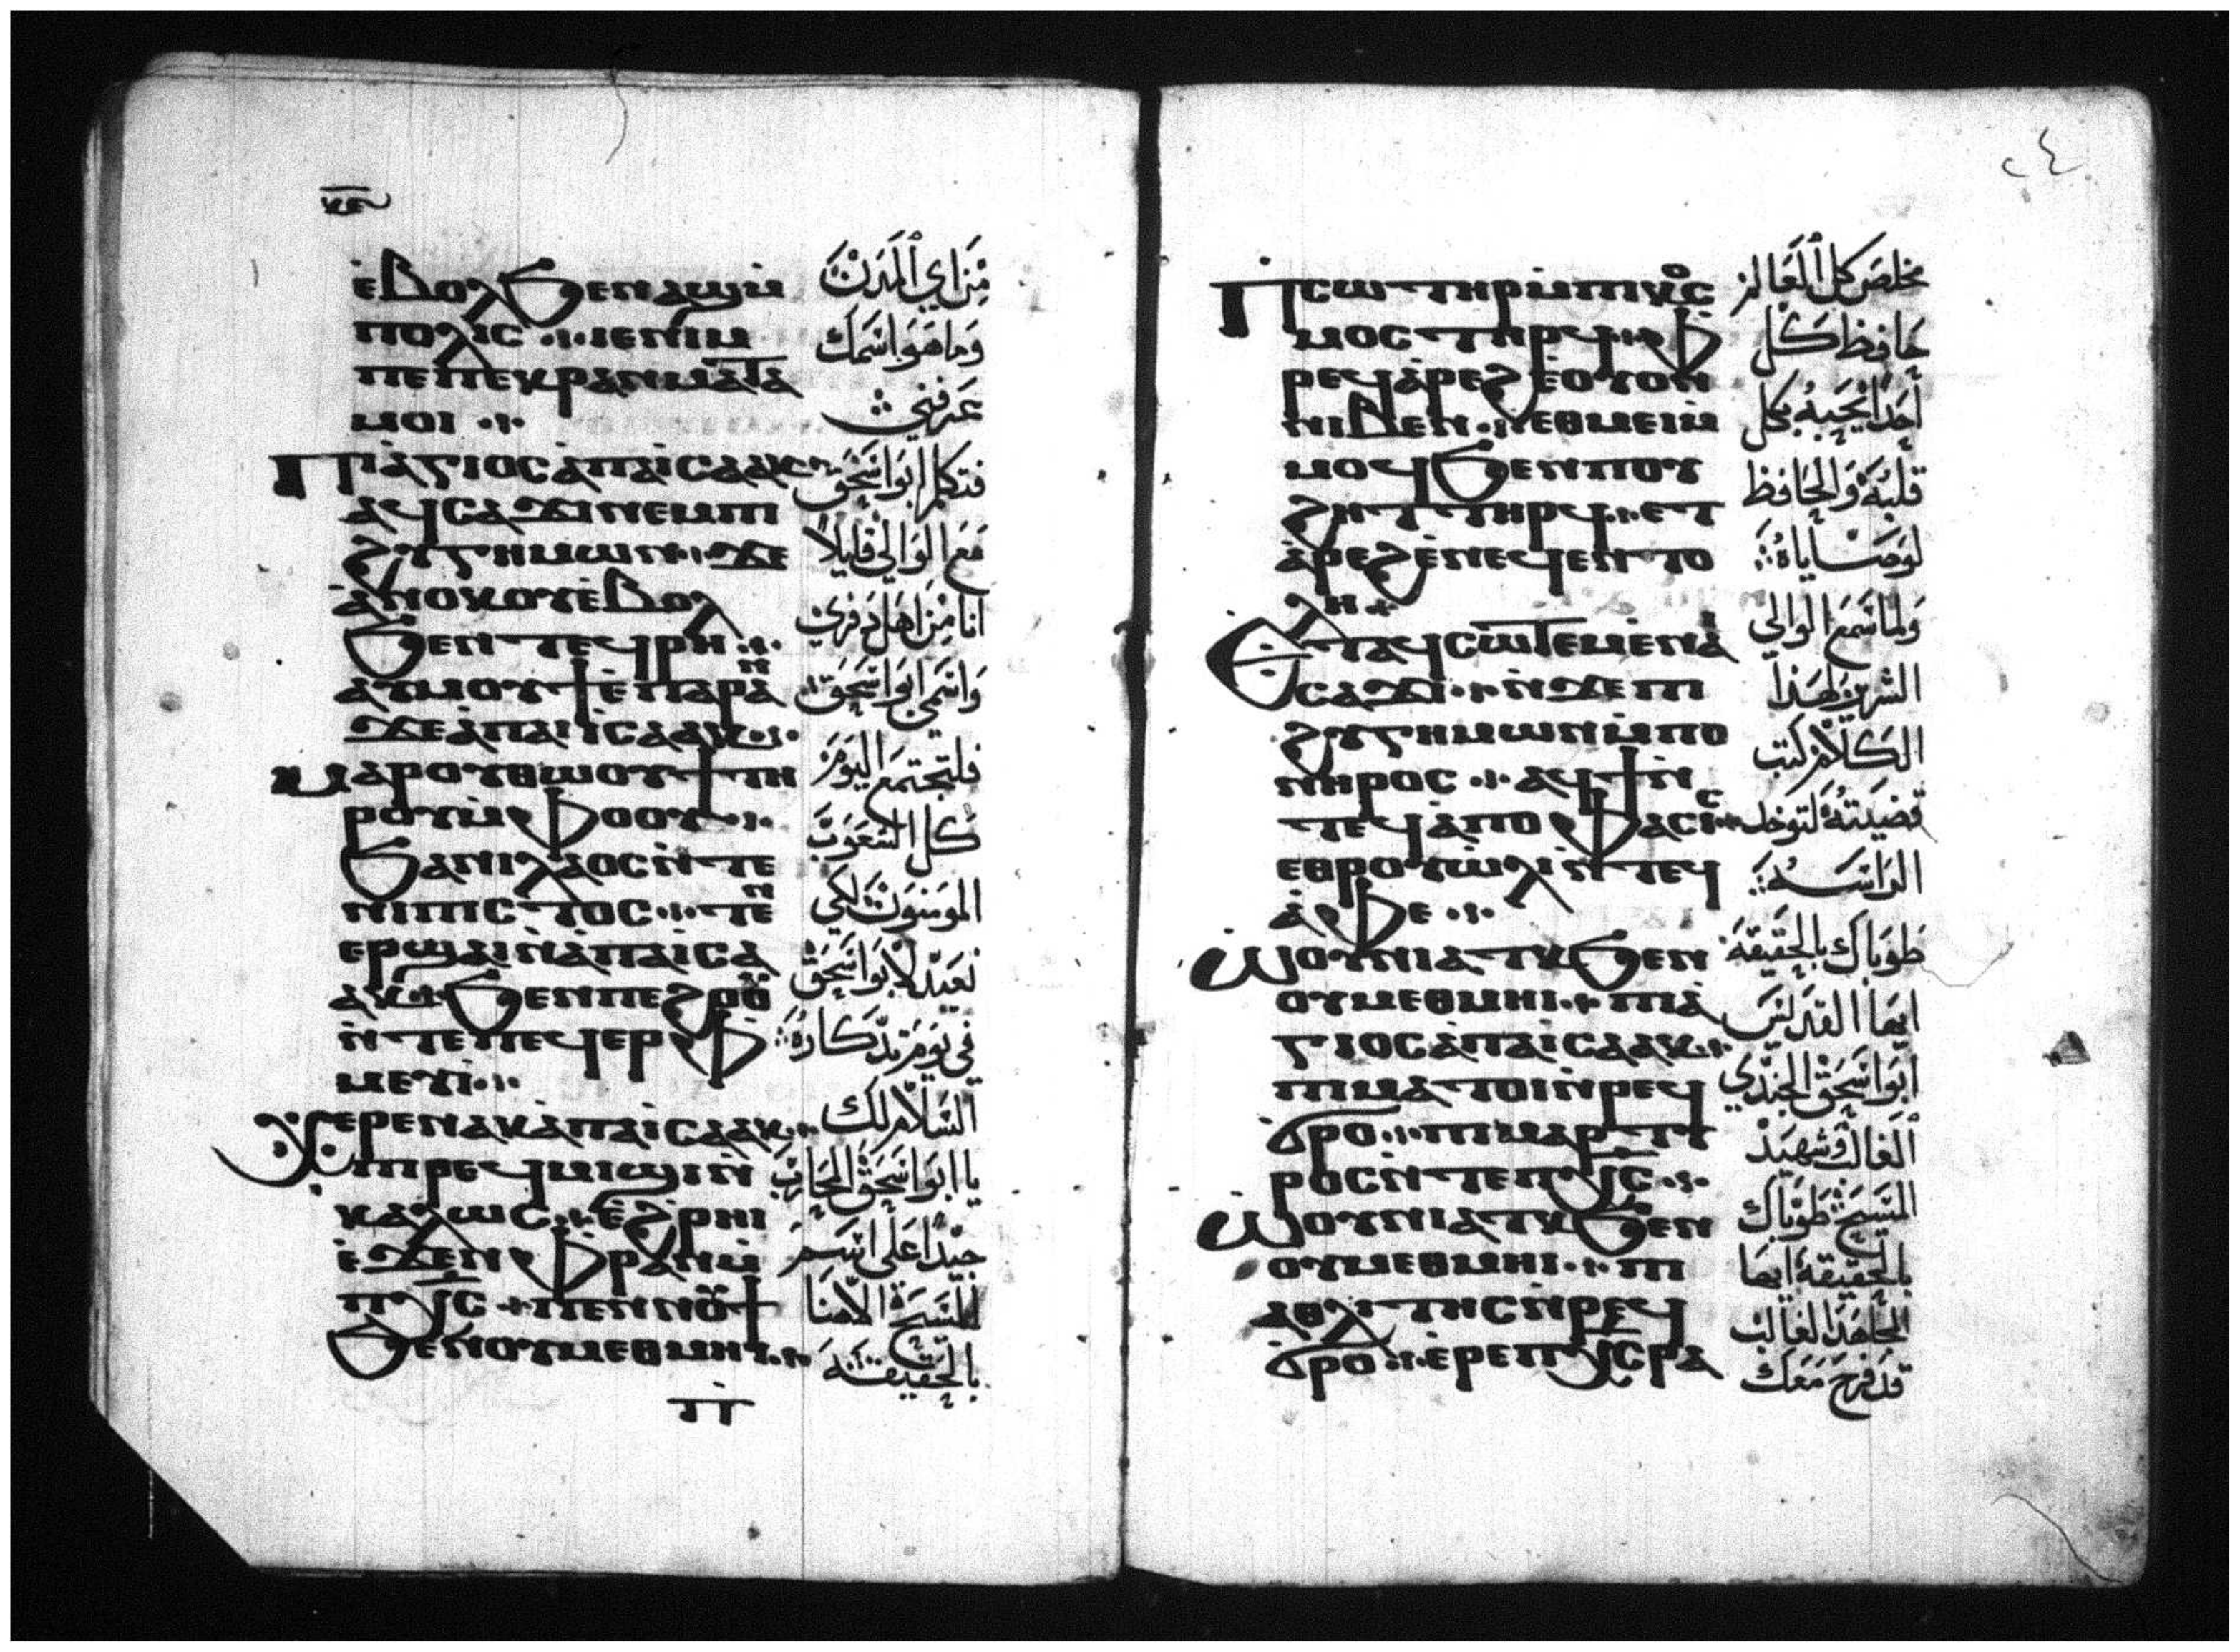 ⲕ̅ⲉ̅
ⲉ̇ⲃⲟⲗϧⲉⲛⲁϣⲙ̇
ⲡⲟⲗⲓⲥ ⁘ ⲓⲉⲛⲓⲙ
ⲡⲉⲡⲉⲕⲣⲁⲛⲙⲁⲧⲁ
ⲙⲟⲓ ⁘
Ⲡⲓⲁ̇ⲅⲓⲟⲥⲁ̇ⲡⲁⲓ̇ⲥⲁⲁⲕ
ⲁϥⲥⲁϫⲓⲛⲉⲙⲡⲓ
ϩⲩⲅⲏⲙⲱⲛ ⁘ ϫⲉ
ⲁ̇ⲛⲟⲕⲟⲩⲉ̇ⲃⲟⲗ
ϧⲉⲛⲧⲉϥⲣⲏ ⁘
ⲁⲩⲙⲟⲩϯⲉ̇ⲡⲁⲣⲁ̅ⲛ̅
ϫⲉⲁ̇ⲡⲁⲓ̇ⲥⲁⲁⲕ ⁘
ⲙⲁⲣⲟⲩⲑⲱⲟⲩϯⲧⲏ
ⲣⲟⲩⲙ̇ⲫⲟⲟⲩ ⁘
ϧⲁⲛⲓⲗⲁⲟⲥⲛ̇ⲧⲉ
ⲛⲓⲡⲓⲥⲧⲟⲥ ⁘ ⲧⲉ̅ⲛ̅
ⲉⲣϣⲁⲓⲛ̇ⲁ̇ⲡⲁⲓ̇ⲥⲁ
ⲁⲕ ⁘ ϧⲉⲛⲡⲉϩⲟⲟⲩ
ⲛ̇ⲧⲉⲡⲉϥⲉⲣⲫ
ⲙⲉⲩⲓ̇ ⁘
Ⲭⲉⲣⲉⲛⲁⲕⲁ̇ⲡⲁⲓ̇ⲥⲁⲁⲕ ⁘
ⲡⲓⲣⲉϥⲙⲓϣⲓⲛ̇
ⲕⲁⲗⲱⲥ ⁘ ⲉ̇ϩⲣⲏⲓ
ⲉ̇ϫⲉⲛⲫⲣⲁⲛⲙ̇
ⲡⲭ̅ⲥ̅ ⁘ ⲡⲉⲛⲛⲟⲩϯ
ϧⲉⲛⲟⲩⲙⲉⲑⲙⲏⲓ ⁘
ⲡⲓ
من اي المدن
وما هو اسمك
عرفني
فتكلم ابو اسحق
مع الوالي قايلا
انا من اهل دفري
واسمي ابو اسحق
فلتجتمع اليوم
كل الشعوب
المومنون لكي
نعيد لابو اسحق
في يوم تدكاره
السلام لك
يا ابو اسحق المحارب
جيدا علي اسم
المسيح الاهنا
بالحقيقه
٤
Ⲡⲥⲱⲧⲏⲣⲙ̇ⲡⲓⲕⲟⲥ
ⲙⲟⲥⲧⲏⲣϥ ⁘ ⲫ
ⲣⲉϥⲁ̇ⲣⲉϩⲉ̇ⲟⲩⲟⲛ
ⲛⲓⲃⲉⲛ ⁘ ⲉⲑⲙⲉⲓⲙ̇
ⲙⲟϥϧⲉⲛⲡⲟⲩ
ϩⲏⲧⲧⲏⲣϥ ⁘ ⲉⲧ
ⲁ̇ⲣⲉϩⲉ̇ⲛⲉϥⲉⲛⲧⲟ
ⲗⲏ ⁘
Ⲉⲧⲁϥⲥⲱⲧⲉⲙⲉ̇ⲛⲁ
ⲥⲁϫⲓ ⁘ ⲛ̇ϫⲉⲡⲓ
ϩⲩⲅⲏⲙⲱⲛⲙ̇ⲡⲟ
ⲛⲏⲣⲟⲥ ⁘ ⲁϥϯⲛ̇
ⲧⲉϥⲁ̇ⲡⲟⲫⲁⲥⲓⲥ ⁘
ⲉⲑⲣⲟⲩⲱ̇ⲗⲓⲛ̇ⲧⲉϥ
ⲁ̇ⲫⲉ ⁘
Ⲱⲟⲩⲛⲓⲁⲧⲕϧⲉⲛ
ⲟⲩⲙⲉⲑⲙⲏⲓ ⁘ ⲡⲓⲁ̇
ⲅⲓⲟⲥⲁ̇ⲡⲁⲓ̇ⲥⲁⲁⲕ ⁘
ⲡⲓⲙⲁⲧⲟⲓⲛ̇ⲣⲉϥ
ϭⲣⲟ ⁘ ⲡⲓⲙⲁⲣⲧⲩ
ⲣⲟⲥⲛ̇ⲧⲉⲡⲭ̅ⲥ̅ ⁘
Ⲱⲟⲩⲛⲓⲁⲧⲕϧⲉⲛ
ⲟⲩⲙⲉⲑⲙⲏⲓ ⁘ ⲡⲓ
ⲁⲑⲗⲓⲧⲏⲥⲛ̇ⲣⲉϥ
ϭⲣⲟ ⁘ ⲉ̇ⲣⲉⲡⲭ̅ⲥ̅ⲣⲁ
مخلص كل العالم
حافظ كل
احدا يحبه بكل
قلبه والحافظ
لوصاياه
ولما سمع الوالي
الشرير لهذا
الكلام كتب
قضيته لتوخد
الراسه
طوباك بالحقيقه
ايها القديس
ابو اسحق الجندي
الغالب وشهيد
المسيح طوباك
بالحقيقه ايها
المجاهد الغالب
قد فرح معك